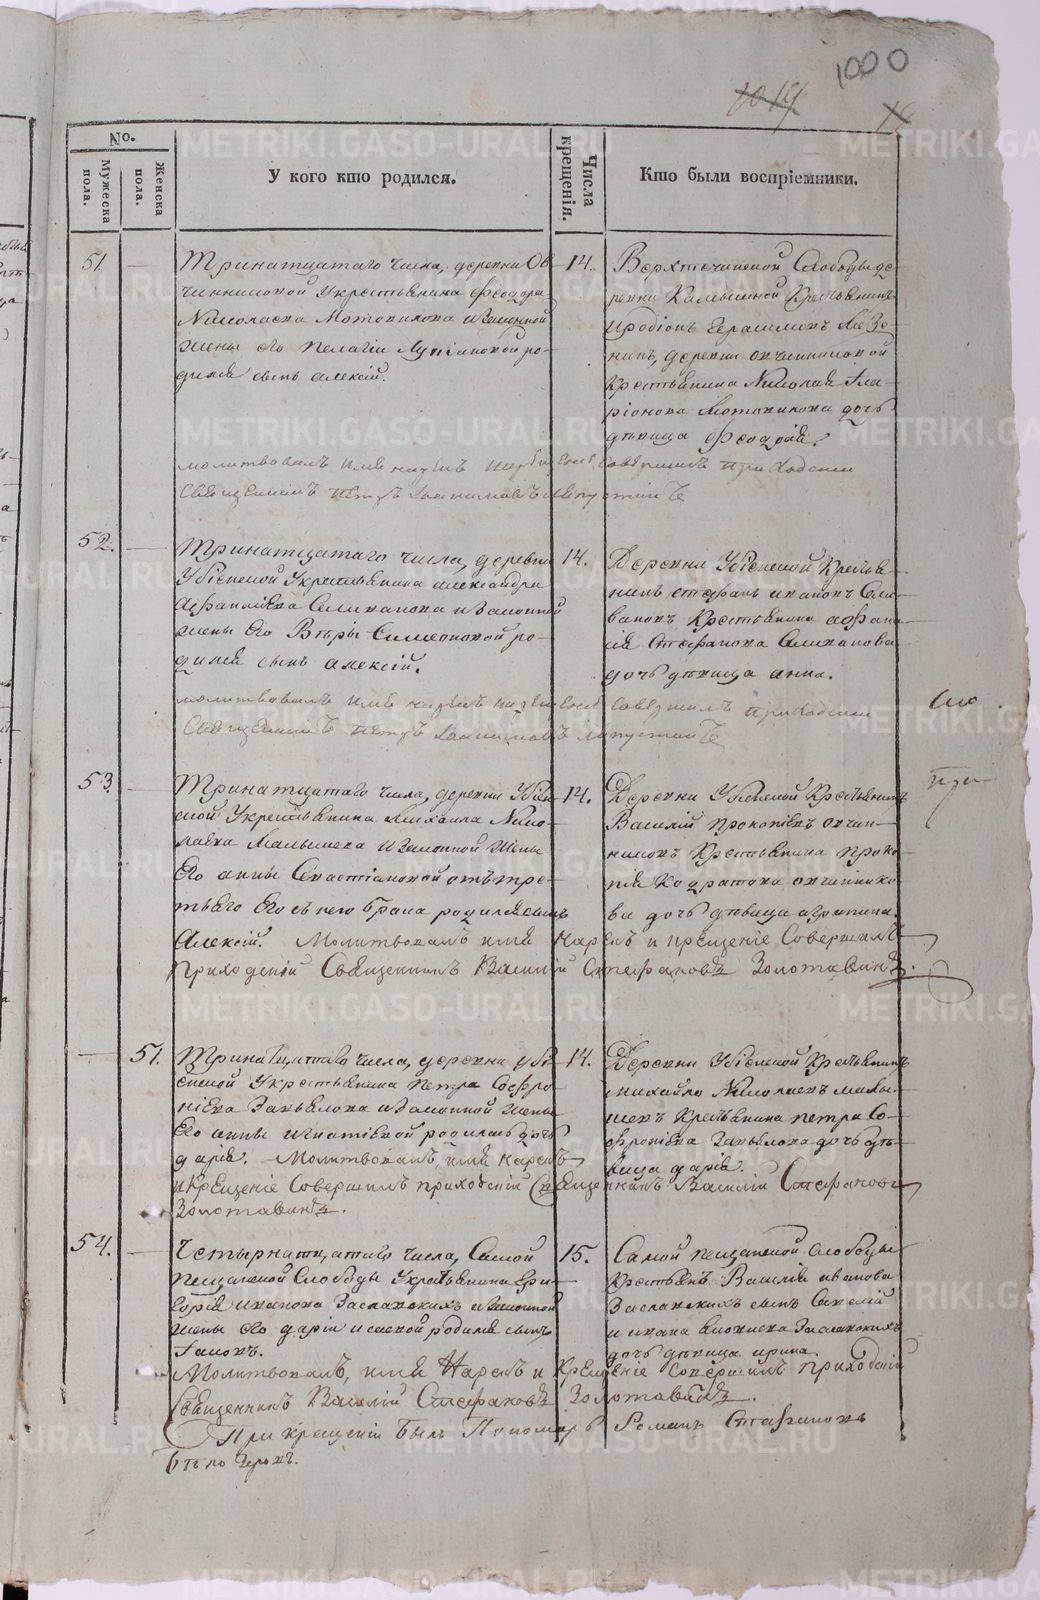 1000
1019
No.
Мужеска пола.
Женска пола.
У кого кто родился.
Числа крещенія.
Кто были воспріемники.
51.
Тринатцатаго числа, деревни Ов-
чинниковой у крестьянина Феодора
Николаева Мотовилова и законной
жены его Пелагіи Лукіановой ро-
дился сынъ Алексій.
14.
Верхтеченской Слободы де-
ревни Камышной Крестьянинъ
Иродіонъ Герасимовъ
нинъ, деревни Овчинниковой
Крестьянина Николая Ила-
ріонова Мотовилова дочь
дѣвица Феодосія.
молитвовалъ имя нарекъ и крещеніе совершилъ приходскій
Священникъ Петръ Іоакимовъ
52.
Тринатцатаго числа, деревни
Убіенной у крестьянина Александра
Афанасіева Селиванова и законной
жены его Вѣры Симеоновой ро-
дился сынъ Алексій.
14.
Деревни Убіенной Крестья-
нинъ Стефанъ Ивановъ Сели-
вановъ Крестьянина Афана-
сія Стефанова Селиванова
дочь дѣвица Анна.
молитвовалъ имя нарекъ и крещеніе совершилъ приходскій
Священникъ Петръ Іоакимовъ
53.
Тринатцатаго числа, деревни Убіен-
ной у крестьянина Михаила Нико-
лаева Малышева и законной жены
его Анны Севастіановой отъ тре-
тьяго его съ нею брака родился сынъ
Алексій. Молитвовалъ имя нарекъ и крещеніе совершилъ
приходскій Священникъ Василій Стефановъ Золотавинъ.
14.
Деревни Убіенной Крестьянинъ
Василій Прокопіевъ Овчин-
никовъ Крестьянина Проко-
пія Кодратова Овчиннико-
ва дочь дѣвица Агрипина.
51.
Тринатцатаго числа, деревни Убі-
енной у крестьянина Петра Софро-
ніева Завьялова и законной жены
его Анны Игнатіевой родилась дочь
Дарія. Молитвовалъ, имя нарекъ
и крещеніе совершилъ приходскій Священникъ Василій Стефановъ
Золотавинъ.
14.
Деревни Убіенной Крестьянинъ
Михайло Николаевъ Малы-
шевъ Крестьянина Петра Со-
фроніева Завьялова дочь дѣ-
вица Дарія.
54.
Четырнатцатаго числа, Самой
Пещанской Слободы у крестьянина Гри-
горія Иванова Засланскихъ и законной
жены его Даріи Исаевой родился сынъ
15.
Самой Пещанской Слободы
Крестьянъ Василія Иванова
Засланскихъ сынъ Савелій
и Ивана Засланскихъ
дочь дѣвица Ирина.
Молитвовалъ, имя нарекъ и крещеніе совершилъ приходскій
Священникъ Василій Стефановъ Золотавинъ.
При крещеніи былъ Пономарь Романъ Стефановъ
METRIKI.GASO-URAL.RU